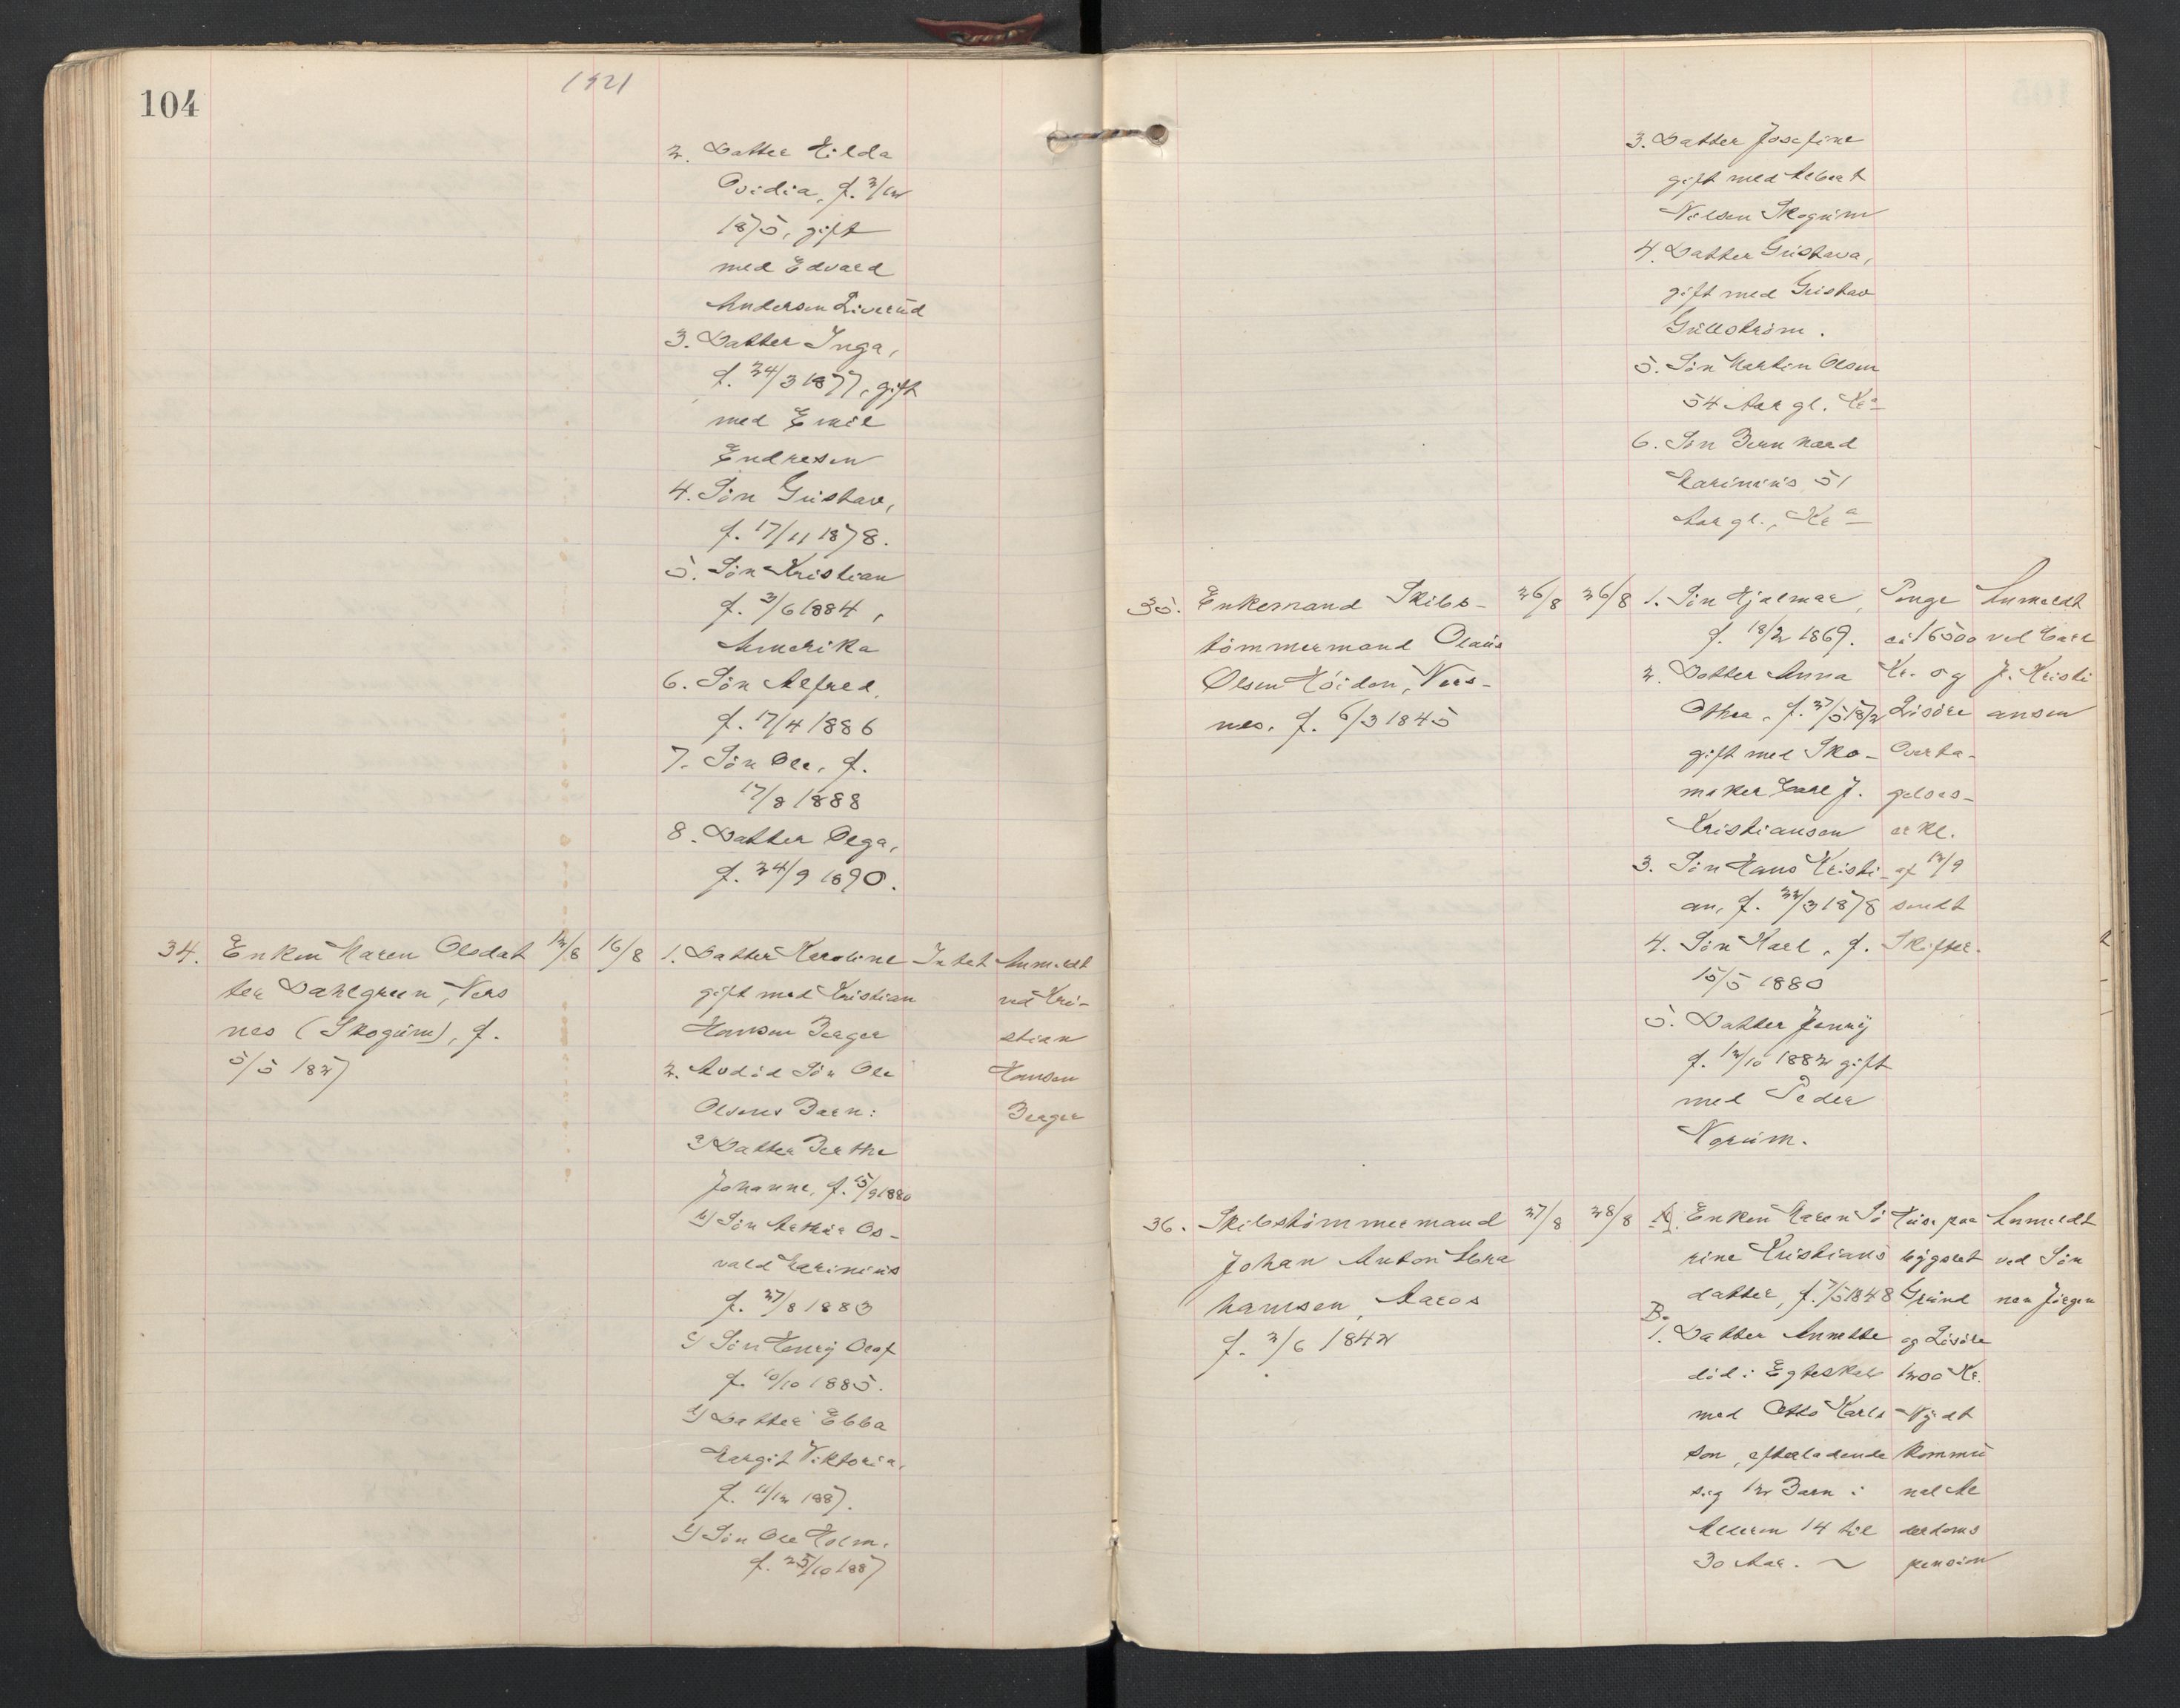 104
1921
2. Datter Hilda
Ovidia, f. 2/12
1875, gift
med Edvard
Andersen Liverud
3. Datter Inga,
f. 24/3 1877, gift
med Emil
Endresen
4. Søn Gustav,
f. 17/11 1878.
5. Søn Kristian
f. 3/6 1884,
Amerika
6. Søn Alfred,
f. 17/4 1886
7. Søn Ole, f.
17/8 1888
8. Datter Olga,
f. 24/9 1890.
34. Enken Maren Olsdat
ter Dahlgreen, Vers
nes (Skogum), f.
5/5 1827
12/8 16/8
1. Datter Karoline
gift med Kristian
Hansen Berger
2. Avdød Søn Ole
Olsens Barn:
a) Datter Berthe
Johanne, f. 15/9 1880
b) Søn Os-
vald Marinius
f. 27/8 1883
c) Søn Henry Olaf
f. 10/10 1885.
d) Datter Ebba
Margit Viktoria,
f. 11/12 1887.
e) Søn Ole Holm,
f. 25/10 1887
Intet
Anmeldt
ved Kri-
stian
Hansen
Berger
3. Datter Josefine
gift med Albert
Nilsen Skogum
4. Datter Gustava,
gift med Gustav
Gullström.
5. Søn Martin Olsen
54 Aar gl. Kra
6. Søn Bernhard
Marinius 51
Aar gl., Kra
35. Enkemand Skibs-
tømmermand Olaus
Olsen Høiden, Vers-
nes, f. 6/3 1845
26/8 26/8
1. Søn Hjalmar,
f. 18/2 1869.
2. Datter Anna
Othea, f. 27/5 1872
gift med Sko-
maker Carl J.
Kristiansen
3. Søn Hans Kristi-
an, f. 22/3 1878
4. Søn Karl, f.
15/5 1880
5. Datter Jenny
f. 12/10 1882 gift
med Peder
Norum.
Penge
ca 16500
Kr. og
Løsøre
Overta-
gelses-
erkl.
af 12/9
sendt
Skifter.
Anmeldt
ved Carl
J. Kristi
ansen
36. Skibstømmermand
Johan Anton Abra
hamsen, Aaros
f. 2/6 1842
27/8 28/8
A. Enken Maren Sø
rine Kristians
datter, f. 7/5 1848
B.
1. Datter Annette
død i Egteskab
med Otto Karls
son, efterladende
sig 12 Barn i
Alderen 14 til
30 Aar. ~
Huse paa
bygslet
Grund
og Løsøre
1200 Kr.
Nydt
kommu
nal Al
derdoms
pension
Anmeldt
ved Søn
nen Jørgen